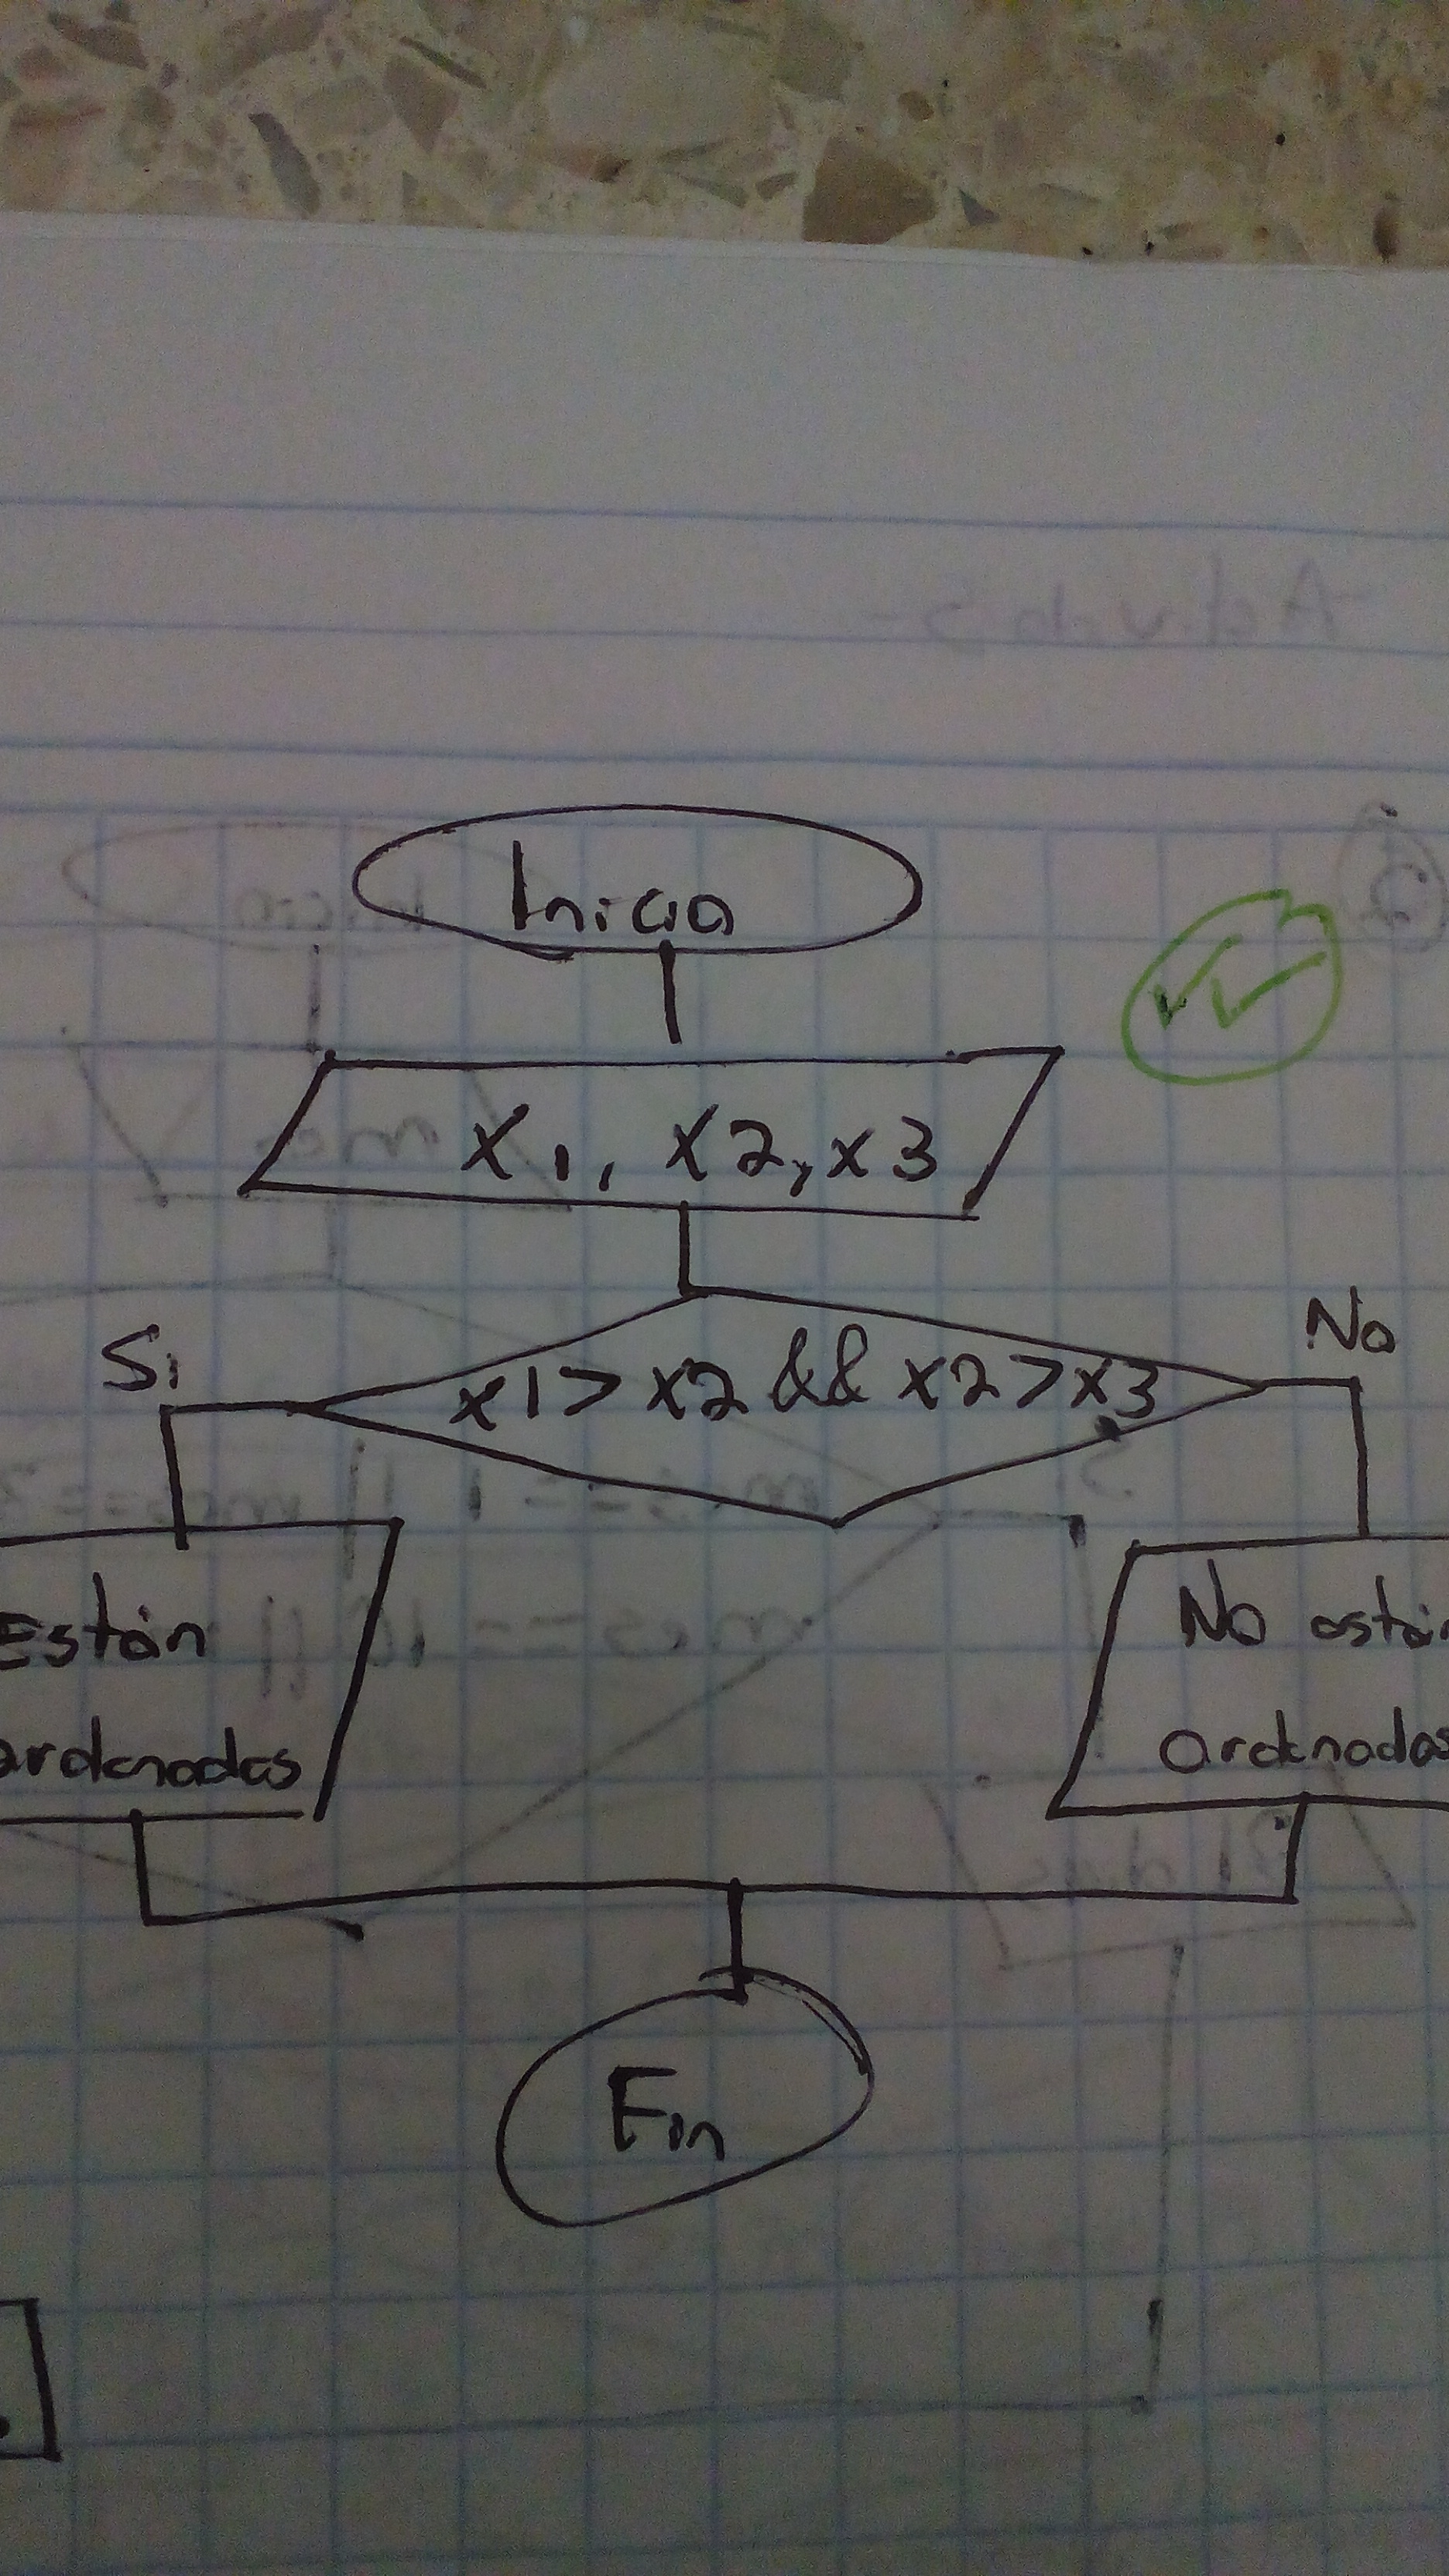 Inicio
x1, x2, x3
Si
No
x1 > x2 && x2 > x3
Están
ordenadas
No están
ordenadas
Fin